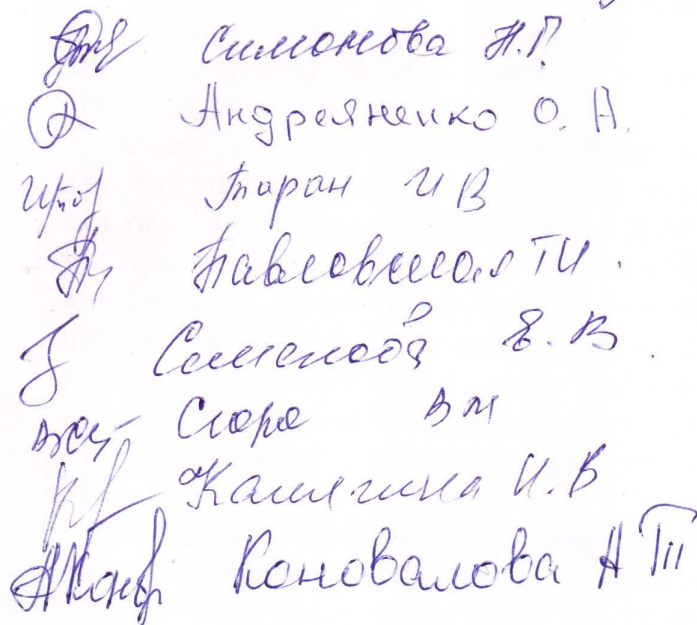 Симонова Н.Г.
Андреяненко О. А.
Таран И В
Павловская Т И.
Е. В.
В М
Калягина И. В
Коновалова А П